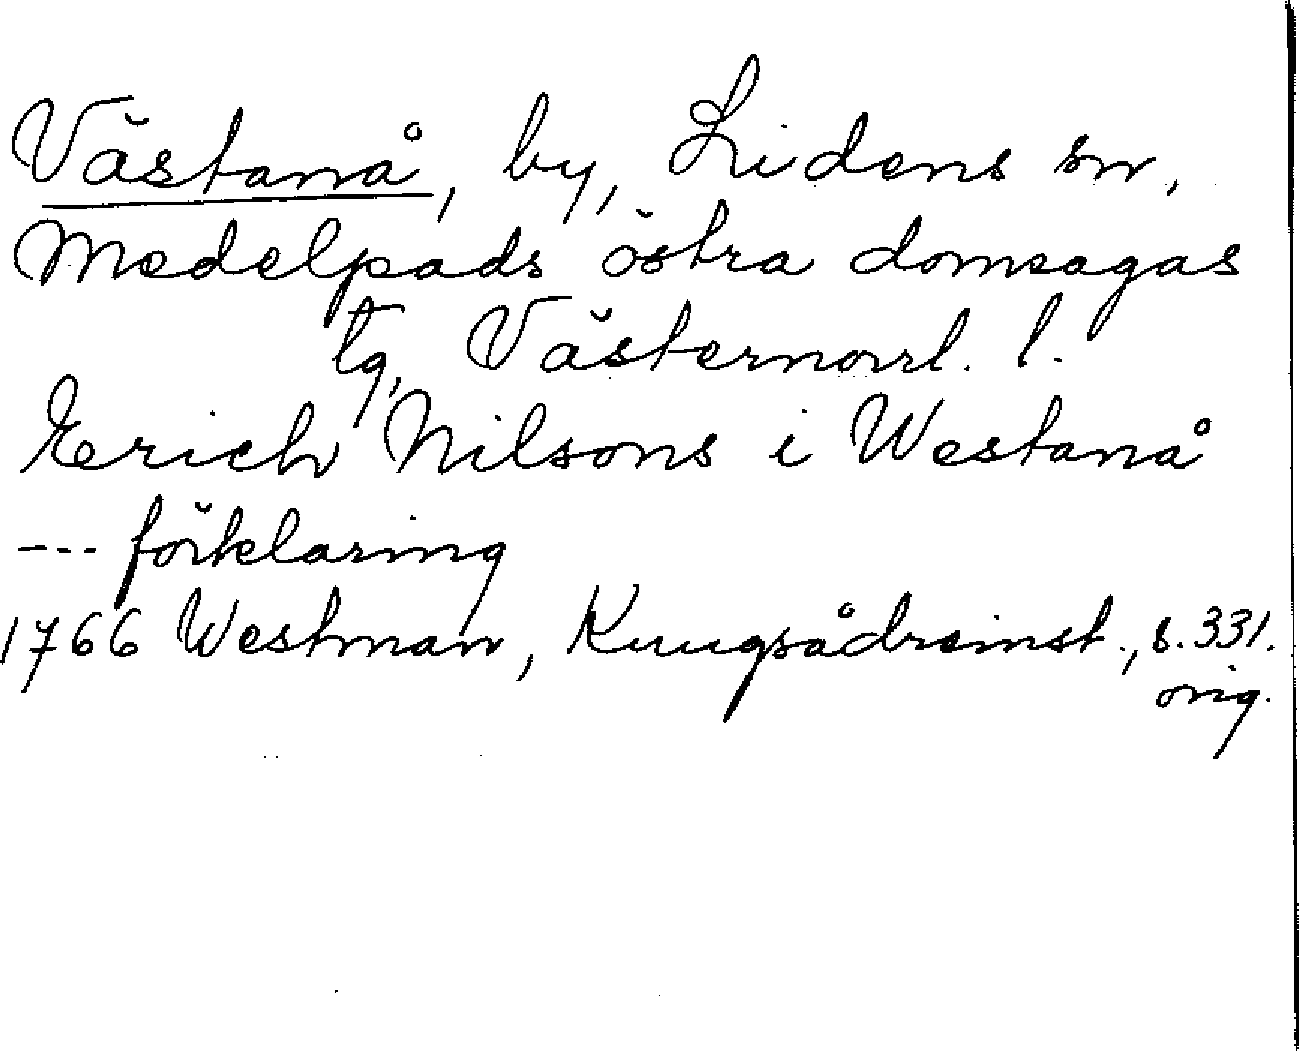 Västanå, by, Lidens sn,
Medelpads östra domsagas
tg, Västernorrl. l.
Erich Nilsons i Westanå
--- förklaring
1766 Westman, Kungsådreinst., s. 331.
orig.